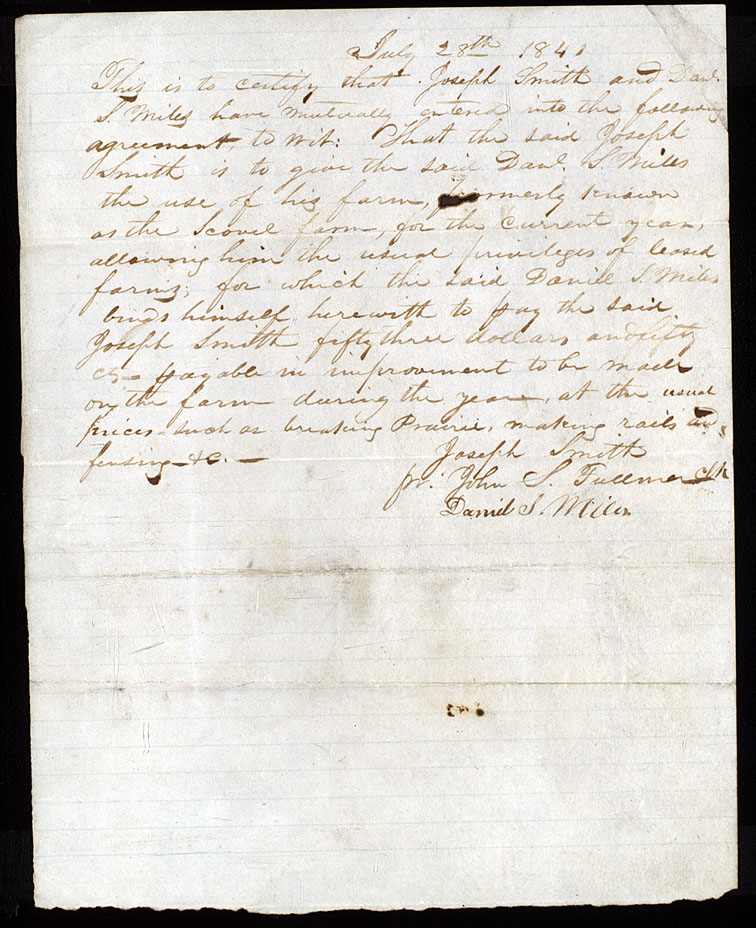 July 28th 1841
This is to certify that Joseph Smith and Danl.
S. Miles have mutually entered into the following
agreement to wit: That the said Joseph
Smith is to give the said Danl. S. Miles
the use of his farm, formerly known
as the Scovel farm, for the current year,
allowing him the usual privileges of leased
farms; for which the said Daniel S. Miles
binds himself herewith to pay the said
Joseph Smith fifty three dollars and fifty
cts— payable in improvement to be made
on the farm during the year, at the usual
prices such as breaking Prairie, making rails and
fensing &c. —
Joseph Smith
pr. John S. Fullmer clk
Daniel S. Miles